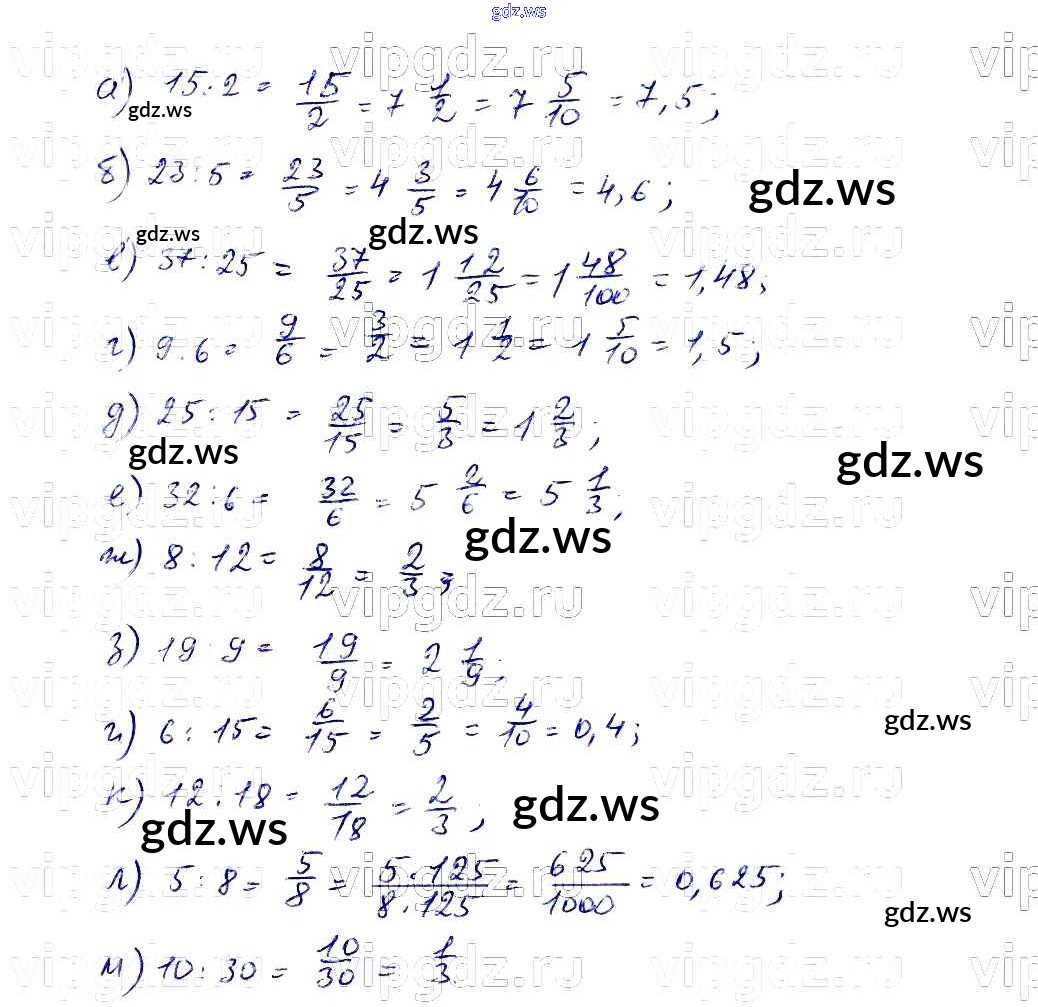 gdz.ws
vipgdz.ru vipgdz.ru vipgdz.ru vip
а) 15:2 = 15/2 = 7 1/2 = 7 5/10 = 7,5;
gdz.ws
б) 23:5 = 23/5 = 4 3/5 = 4 6/10 = 4,6;
gdz.ws
gdz.ws gdz.ws
в) 37:25 = 37/25 = 1 12/25 = 1 48/100 = 1,48;
г) 9:6 = 9/6 = 3/2 = 1 1/2 = 1 5/10 = 1,5;
д) 25:15 = 25/15 = 5/3 = 1 2/3;
gdz.ws gdz.ws
е) 32:6 = 32/6 = 5 2/6 = 5 1/3;
gdz.ws
ж) 8:12 = 8/12 = 2/3;
з) 19:9 = 19/9 = 2 1/9;
и) 6:15 = 6/15 = 2/5 = 4/10 = 0,4;
gdz.ws
к) 12:18 = 12/18 = 2/3;
gdz.ws gdz.ws
л) 5:8 = 5/8 = 5·125/8·125 = 625/1000 = 0,625;
gdz.ws
м) 10:30 = 10/30 = 1/3.